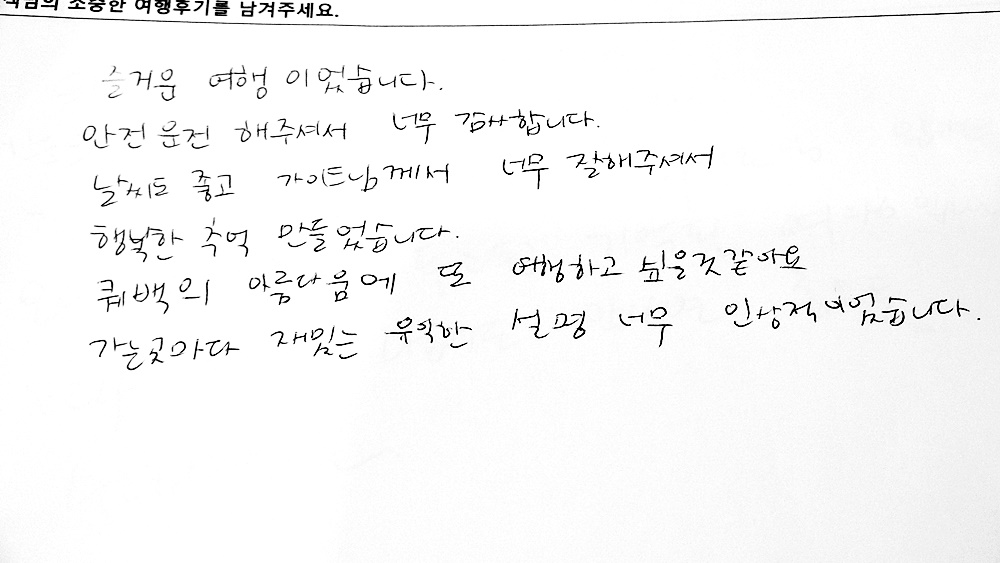 소중한 여행후기를 남겨주세요.
즐거운 여행 이었습니다.
안전운전 해주셔서 너무 감사합니다.
날씨도 좋고 가이드님께서 너무 잘해주셔서
행복한 추억 만들었습니다.
퀘백의 아름다움에 또 여행하고 싶을것 같아요
가는곳마다 재밌는 유익한 설명 너무 인상적이었습니다.